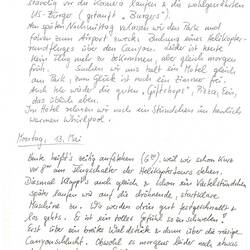 ständig vor die Kamera laufen & die wohlgenährten
US-Bürger (getauft "Burgers").
Am späten Nachmittag verlassen wir den Park und
fahren zum Airport zwecks Buchung eines Helikopter-
rundfluges über den Canyon. Leider ist heute
kein Flug mehr zu bekommen, aber gleich morgen
früh. Suchen wir uns halt ein Motel gleich
am Park, zum Glück ist noch ein Zimmer frei.
Auch wie wieder die guten "Giftshops", Pizza, Eis,
das übliche eben.
Im Hotel relaxen wir noch ein Stündchen im herrlich
warmen Whirlpool.
Montag, 13. Mai
Heute heißt's zeitig aufstehen (6°°), weil wir schon kurz
vor 8°° am Flugschalter der Helikoptertours stehen.
Diesmal klappt's auch gleich & schon ein Viertelstündchen
später laufen wir auf die dröhnende, startklare
Maschine zu. Wir werden drin gut festgeschnallt &
los geht's. Es ist ein tolles Gefühl so zu schweben!
Erst über ein breites Waldstück & dann über die tiefe
Canyonschlucht. Obwohl es morgens leider noch etwas